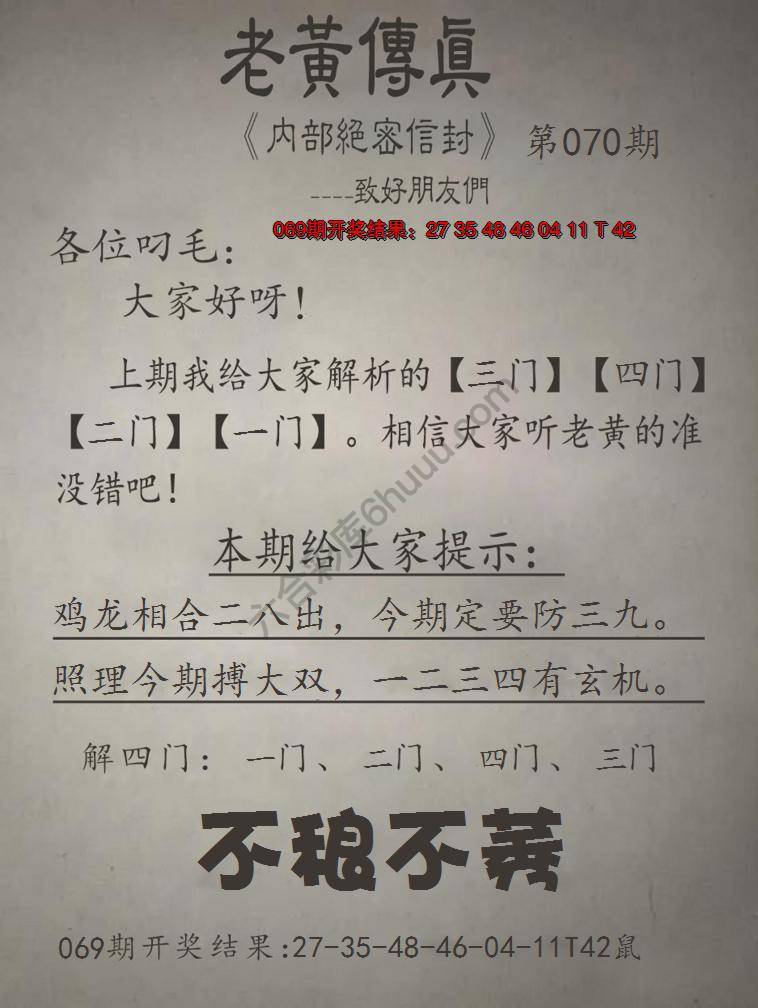 老黃傳真
《内部絕密信封》 第070期
----致好朋友們
069期开奖结果：27 35 48 46 04 11 T 42
各位叼毛：
大家好呀！
上期我给大家解析的【三门】【四门】
【二门】【一门】。相信大家听老黄的准
没错吧！
本期给大家提示：
鸡龙相合二八出，今期定要防三九。
照理今期搏大双，一二三四有玄机。
解四门：一门、二门、四门、三门
不稂不莠
069期开奖结果:27-35-48-46-04-11T42鼠
六合彩库6huuu.com